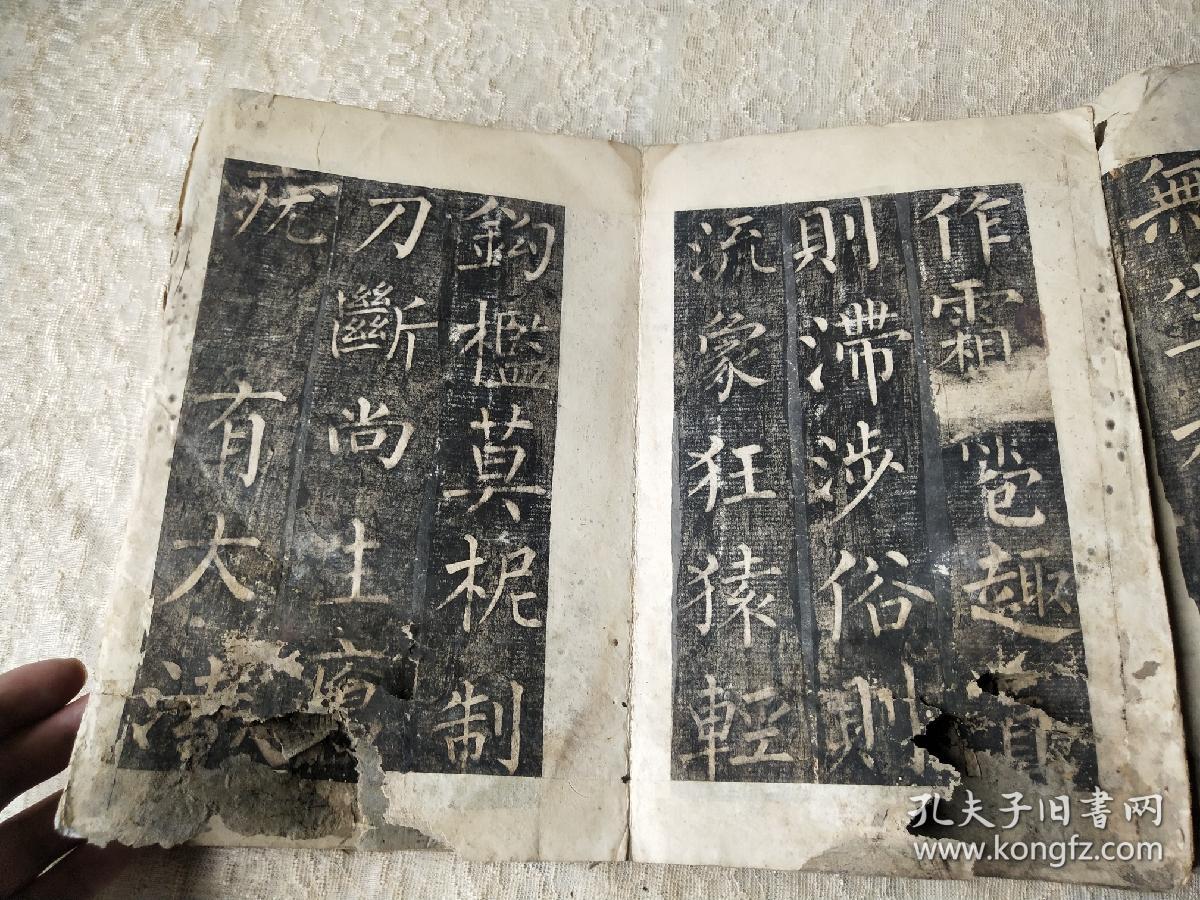 無
作霜雹趣真
則滯涉俗則
流象狂猿輕
鈎檻莫柅制
刀斷尚生瘡
疣有大法
孔夫子旧書网
www.kongfz.com